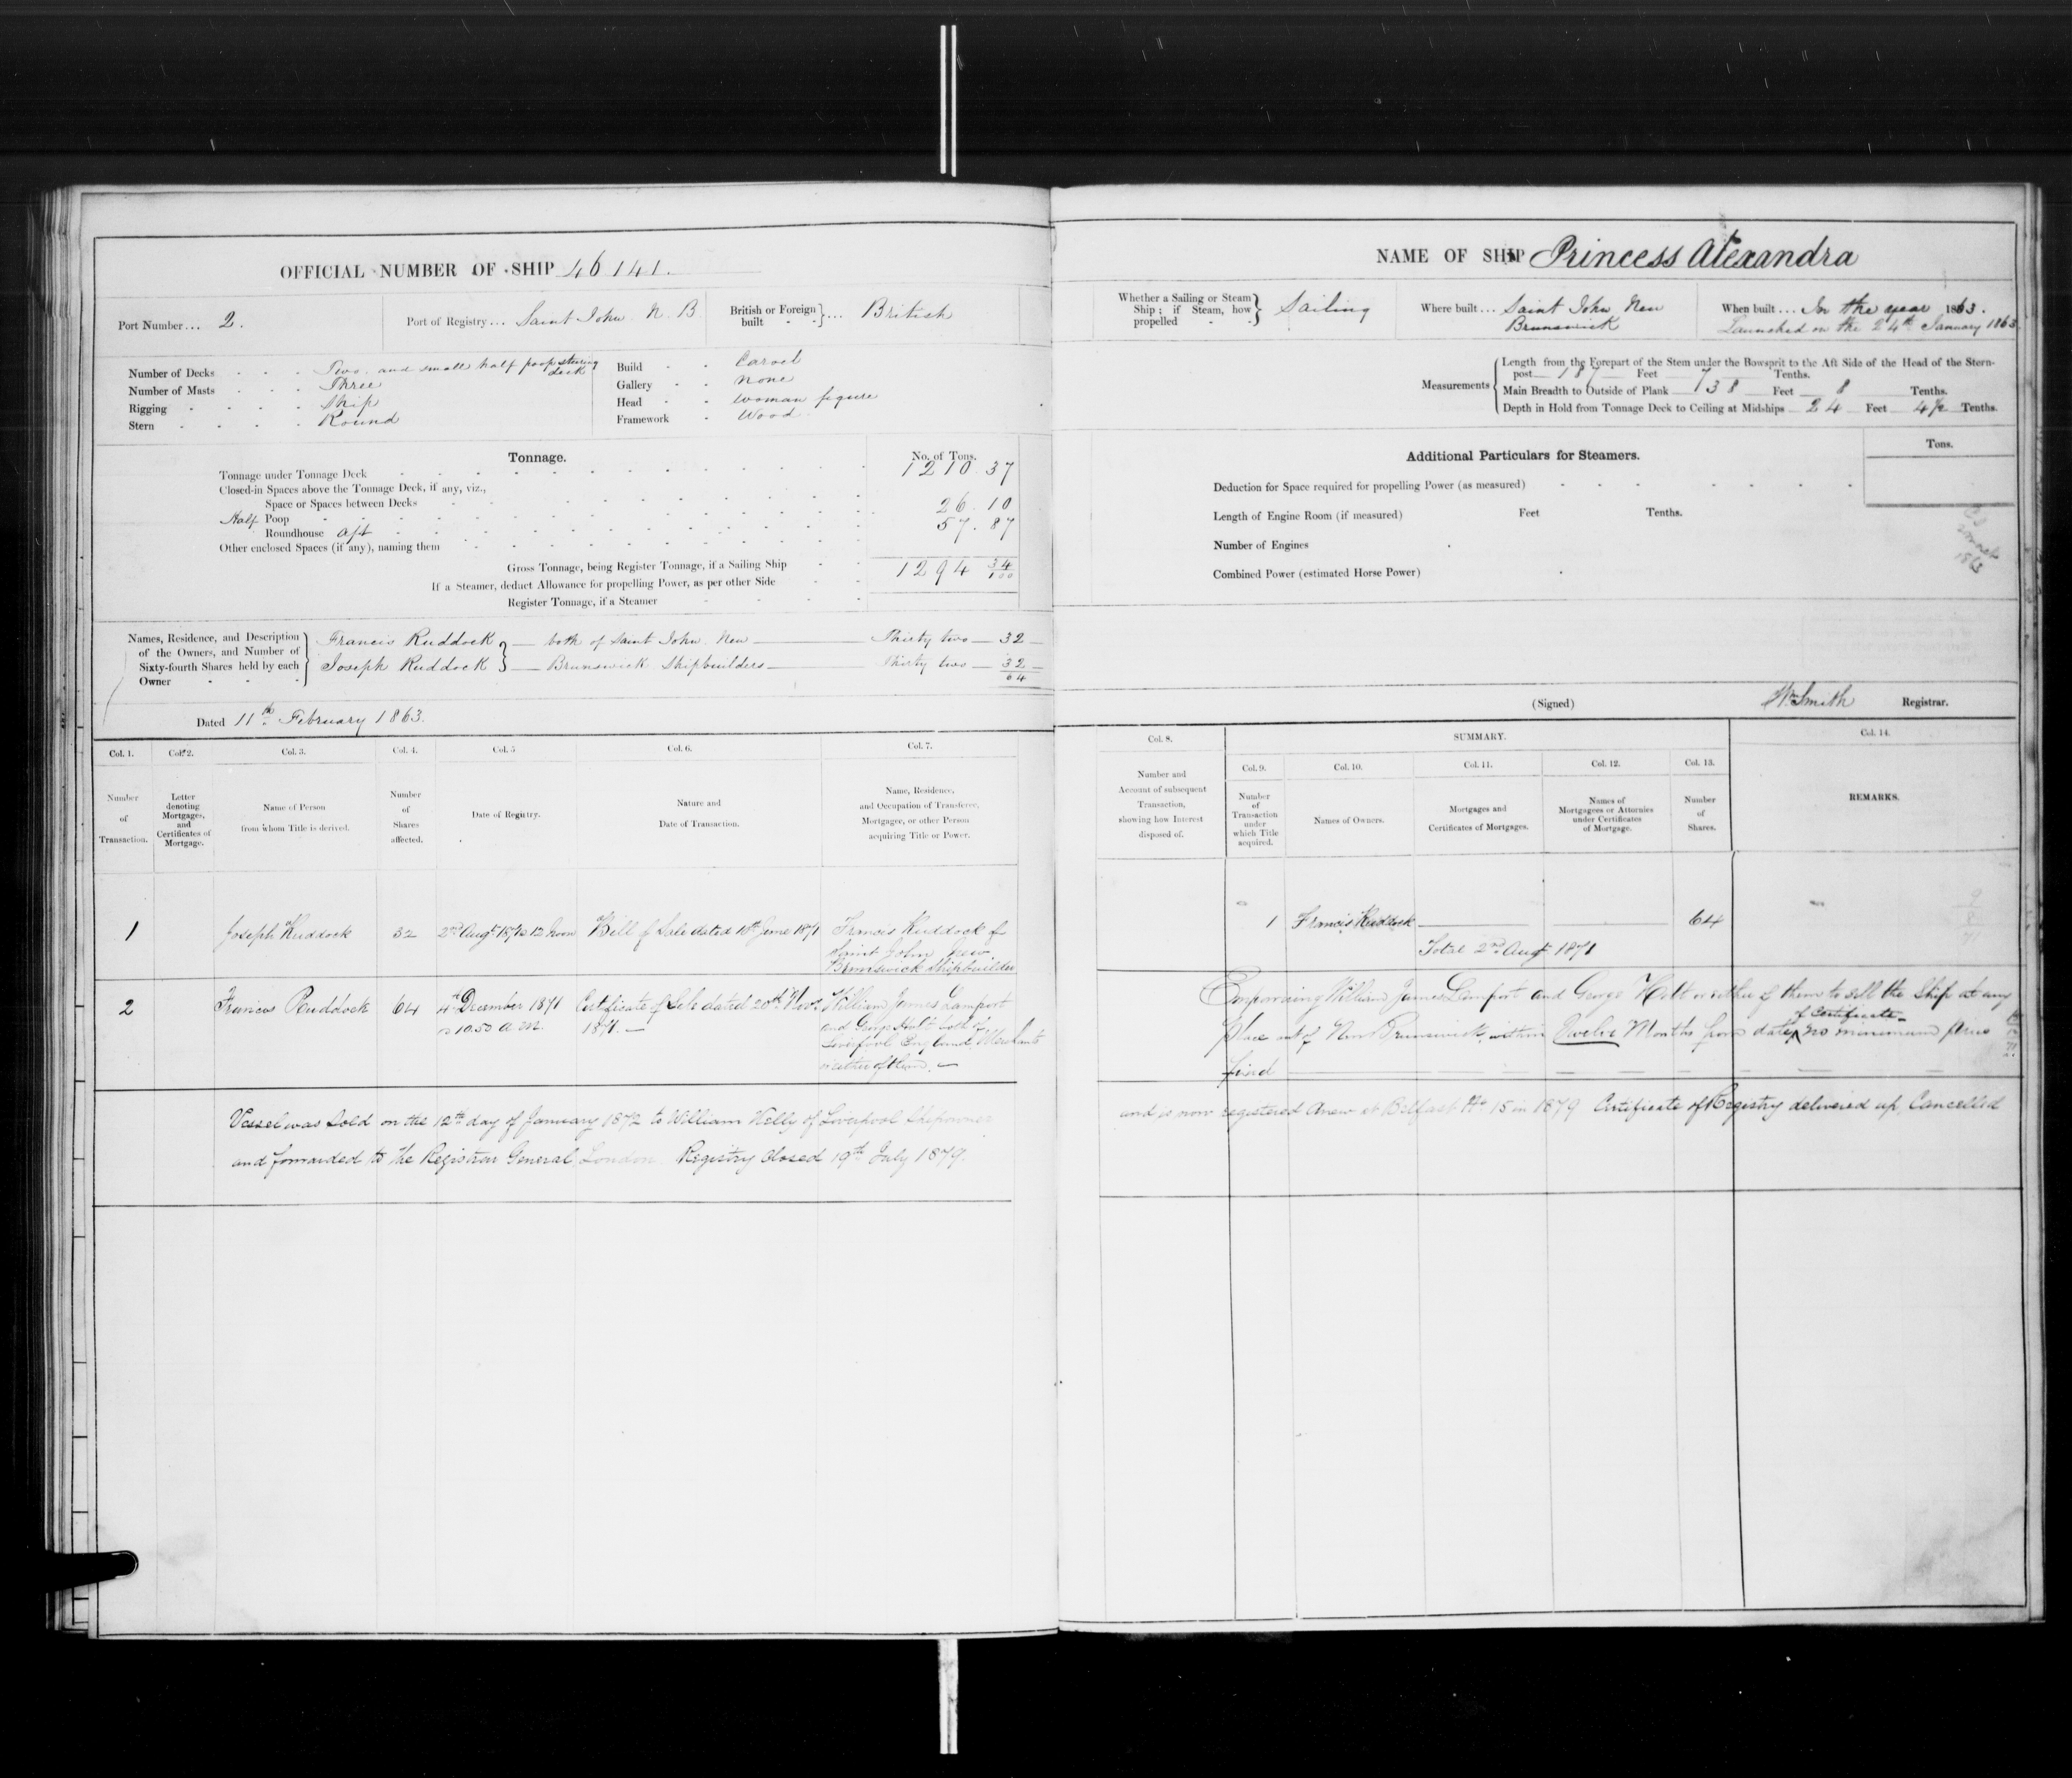 OFFICIAL NUMBER OF SHIP 46141.
NAME OF SHIP Princess Alexandra
Port Number ... 2.
Port of Registry ... Saint John N. B.
British or Foreign built ... British
Whether a Sailing or Steam Ship; if Steam, how propelled Sailing
Where built ... Saint John New
Brunswick
When built ... In the year 1863.
Launched on the 24th January 1863
Number of Decks Two and small half poop
deck
Number of Masts Three
Rigging Ship
Stern Round
Build Carvel
Gallery None
Head Woman figure
Framework Wood
Measurements
Length from the Forepart of the Stem under the Bowsprit to the Aft Side of the Head of the Stern-
post 187 Feet 7 Tenths.
Main Breadth to Outside of Plank 38 Feet 8 Tenths.
Depth in Hold from Tonnage Deck to Ceiling at Midships 24 Feet 4½ Tenths.
Tonnage.
No. of Tons.
Tonnage under Tonnage Deck 1210.37
Closed-in Spaces above the Tonnage Deck, if any, viz.,
Space or Spaces between Decks
Half Poop 26.10
Roundhouse aft 57.87
Other enclosed Spaces (if any), naming them
Gross Tonnage, being Register Tonnage, if a Sailing Ship 1294 34/100
If a Steamer, deduct Allowance for propelling Power, as per other Side
Register Tonnage, if a Steamer
Additional Particulars for Steamers.
Tons.
Deduction for Space required for propelling Power (as measured)
Length of Engine Room (if measured) Feet Tenths.
Number of Engines
Combined Power (estimated Horse Power)
Names, Residence, and Description of the Owners, and Number of Sixty-fourth Shares held by each Owner
Francis Ruddock — both of Saint John New — Thirty two — 32
Joseph Ruddock — Brunswick Shipbuilders — Thirty two — 32
64
Dated 11th February 1863.
(Signed) Wm Smith Registrar.
Col. 1.
Number of Transaction.
Col. 2.
Letter denoting Mortgages, and Certificates of Mortgage.
Col. 3.
Name of Person from whom Title is derived.
Col. 4.
Number of Shares affected.
Col. 5
Date of Registry.
Col. 6.
Nature and Date of Transaction.
Col. 7.
Name, Residence, and Occupation of Transferee, Mortgagee, or other Person acquiring Title or Power.
Col. 8.
Number and Account of subsequent Transaction, showing how Interest disposed of.
SUMMARY.
Col. 9.
Number of Transaction under which Title acquired.
Col. 10.
Names of Owners.
Col. 11.
Mortgages and Certificates of Mortgages.
Col. 12.
Names of Mortgagees or Attornies under Certificates of Mortgage.
Col. 13.
Number of Shares.
Col. 14.
REMARKS.
1 Joseph Ruddock 32 2nd Augt 1871 12 Noon Bill of Sale dated June 1871 Francis Ruddock of
Saint John New
Brunswick Shipbuilder
1 Francis Ruddock 64
Total 2nd Augt 1871
2 Francis Ruddock 64 4th December 1871 Certificate of Sale dated 20th Novr William James Lamport
10.50 a.m. 1871. — and George Holt both of
Liverpool England Merchants
or either of them. —
Empowering William James Lamport and George Holt or either of them to sell the Ship at any
place out of New Brunswick, within Twelve Months from date of Certificate no minimum price
fixed
Vessel was Sold on the 12th day of January 1872 to William Kelly of Liverpool Shipowner
and is now registered Anew at Belfast No 15 in 1879 Certificate of Registry delivered up, Cancelled
and forwarded to the Registrar General London. Registry Closed 19th July 1879.